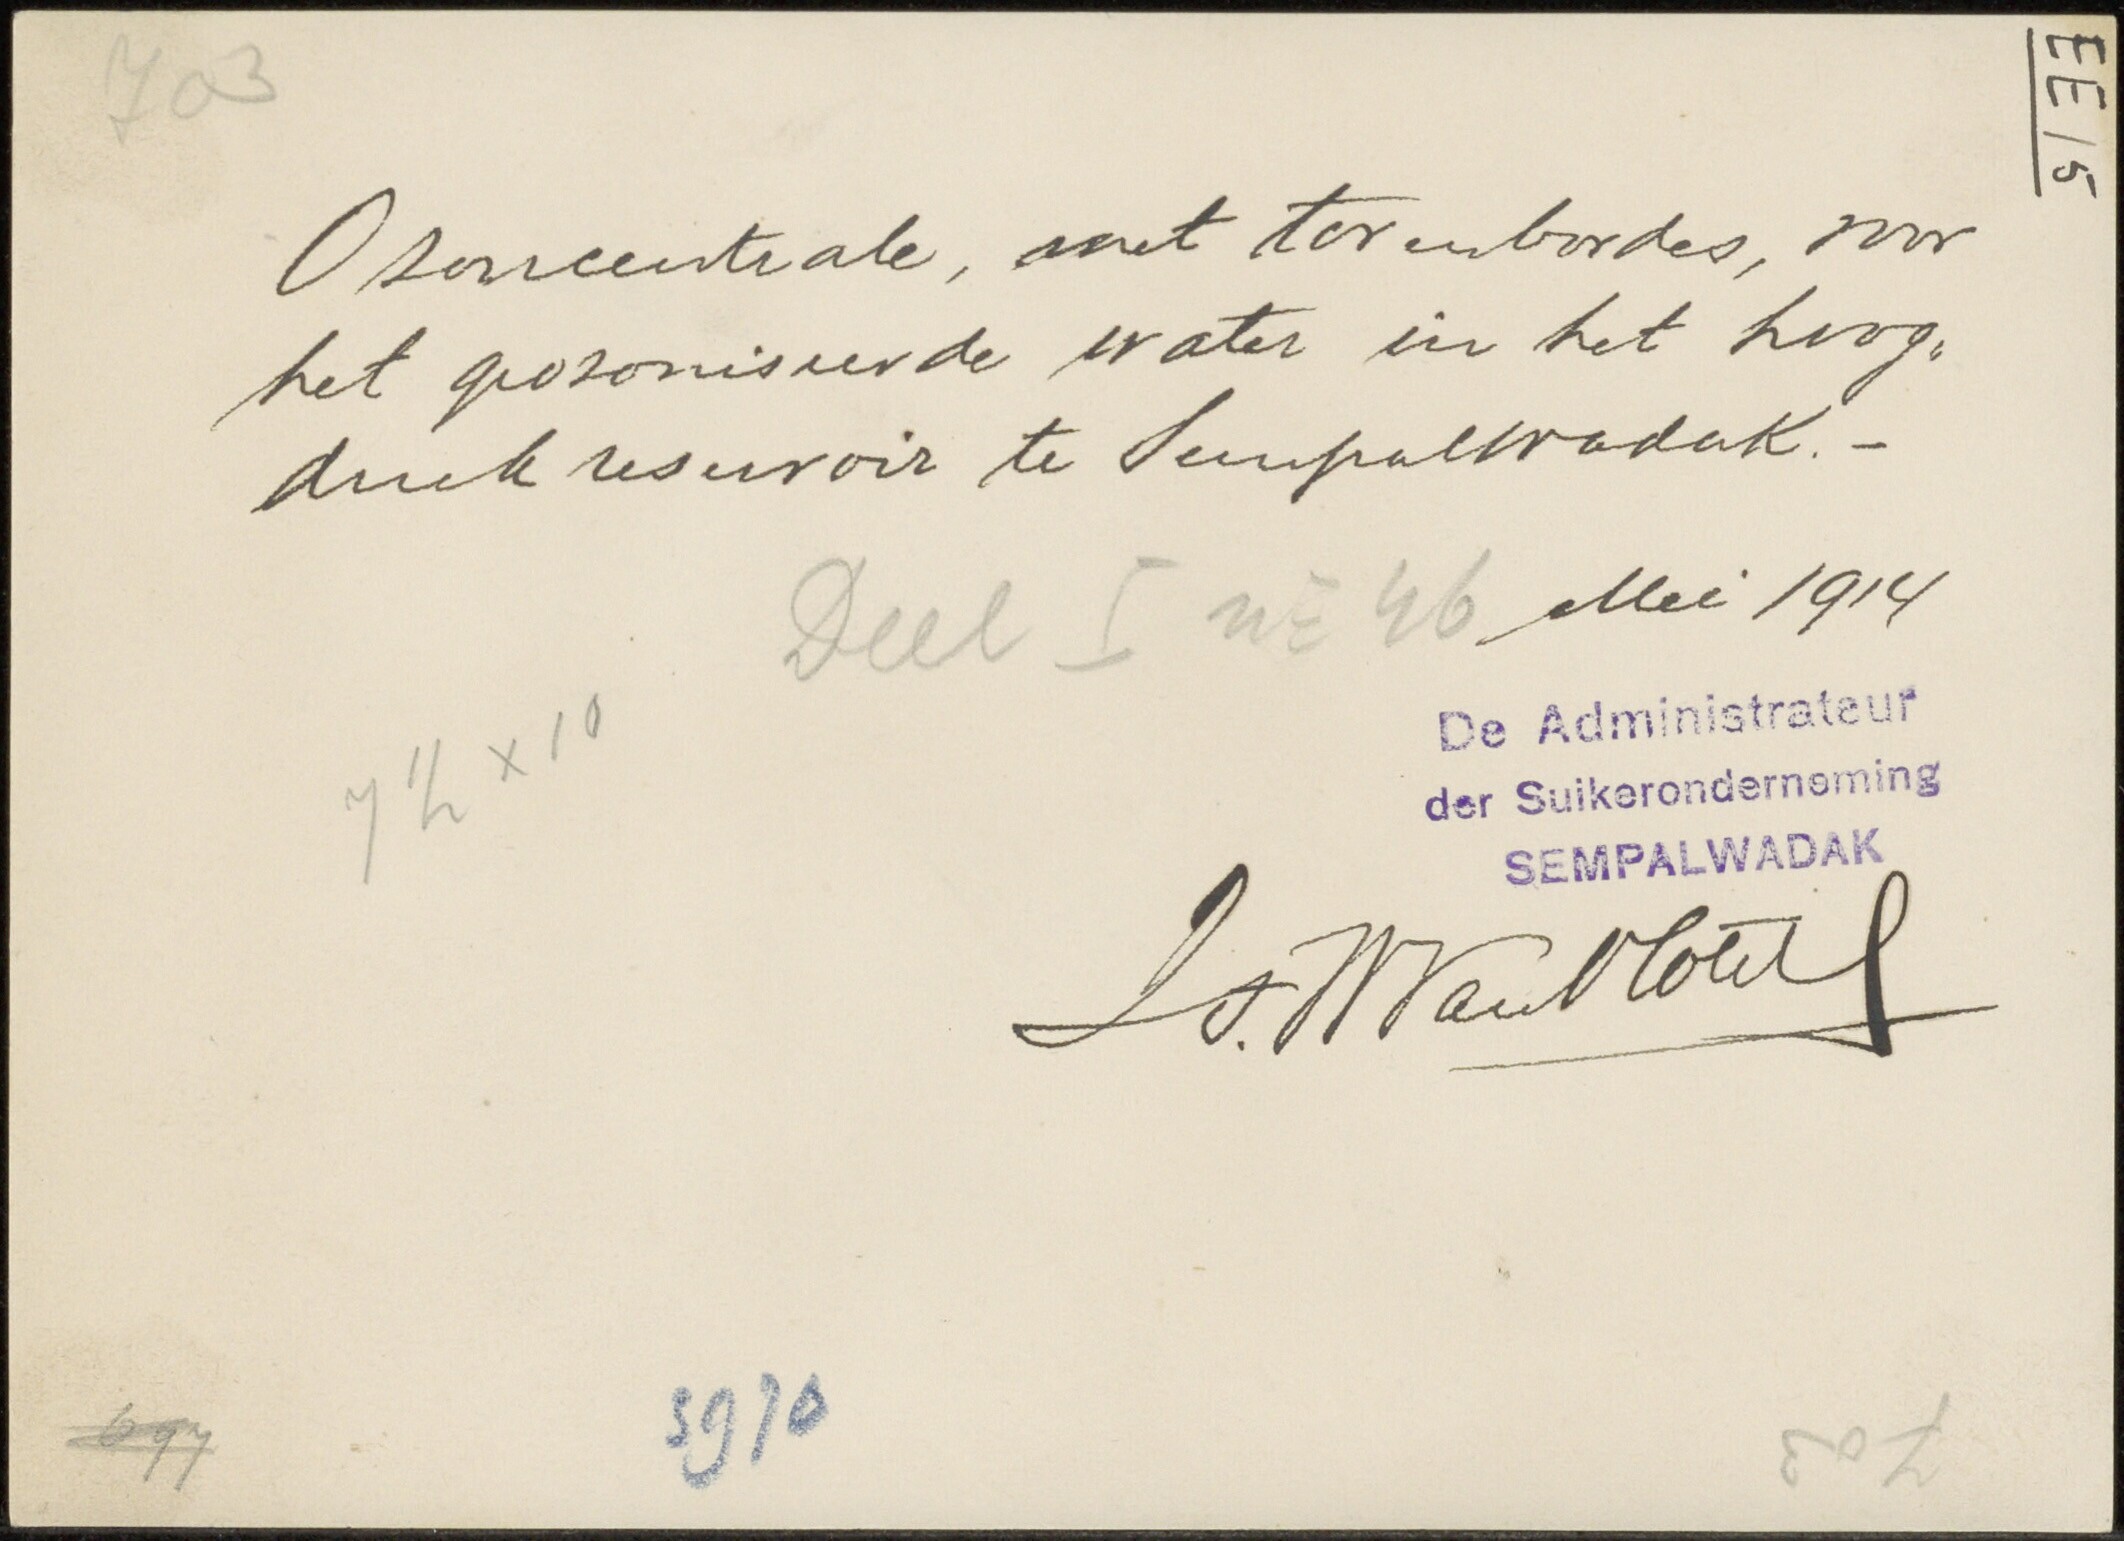 703
EE 15
Osoncentrale, met torenbordes, voor
het geozoniseerde water in het hoog„
druk reservoir te Sempalwadak. -
Deel I no 46
Mei 1914
7 1/2 x 10
De Administrateur
der Suikeronderneming
SEMPALWADAK
697
5970
703